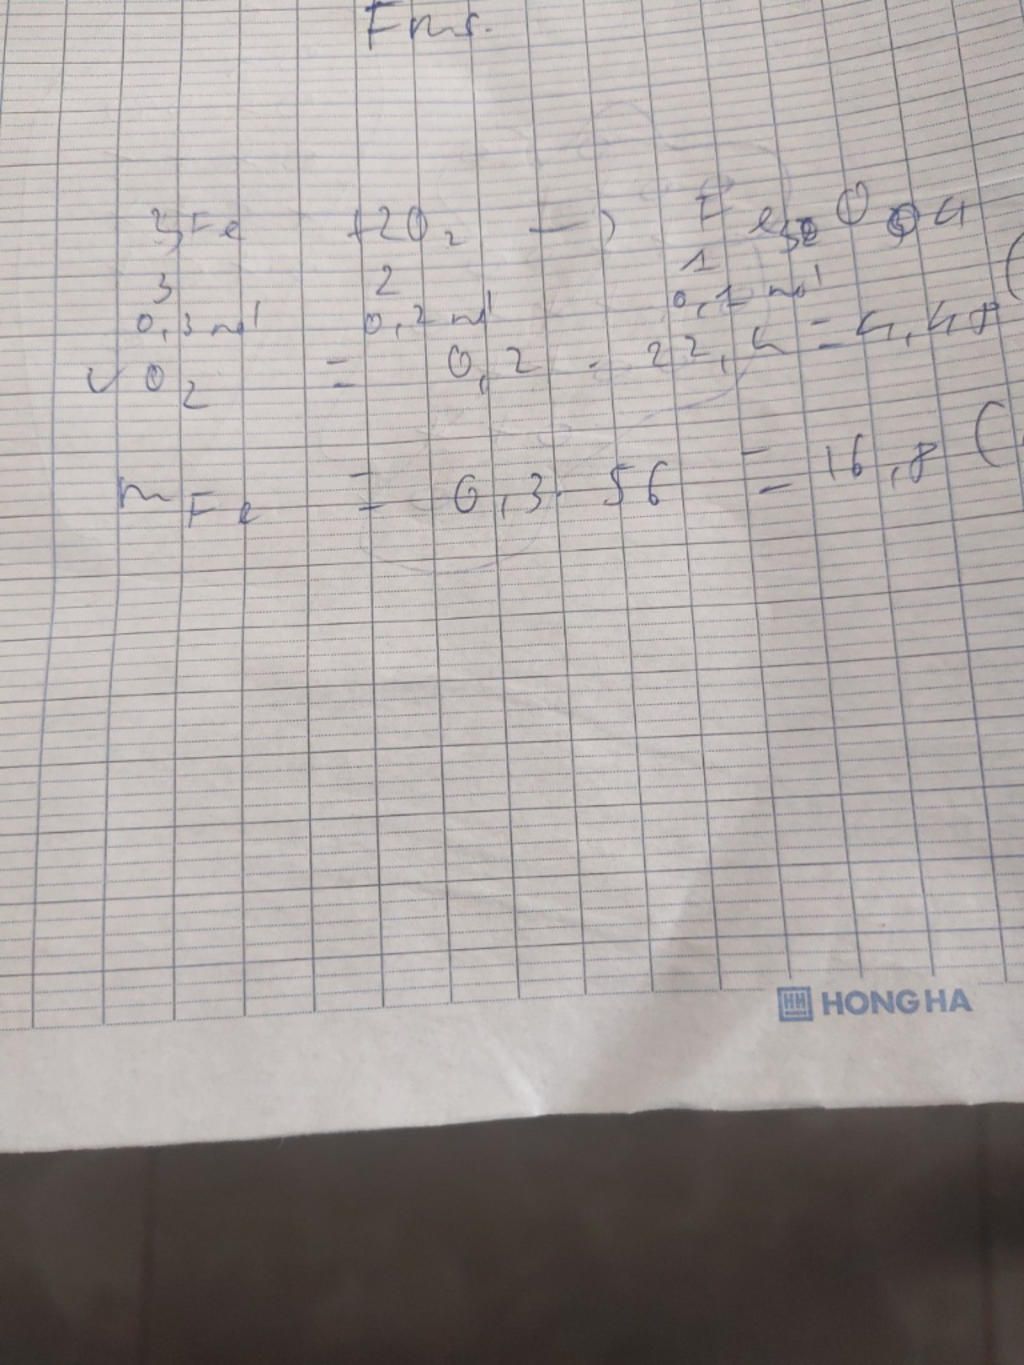 3Fe + 2O2 → Fe3O4
3 2 1
0,3 mol 0,2 mol 0,1 mol
VO2 = 0,2 . 22,4 = 4,48 (
mFe = 0,3 . 56 = 16,8 (
HH HONG HA